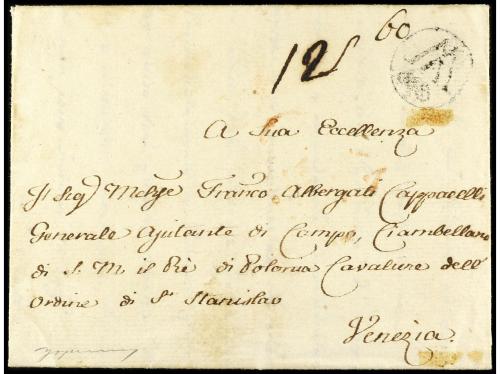 60
12
A Sua Eccellenza
Il Sigr Mchse Franco Albergati Cappacelli
Generale Ajutante di Campo, Ciambellano
di S. M. il Rè di Polonia Cavaliere dell'
Ordine di Sn Stanislao
Venezia.